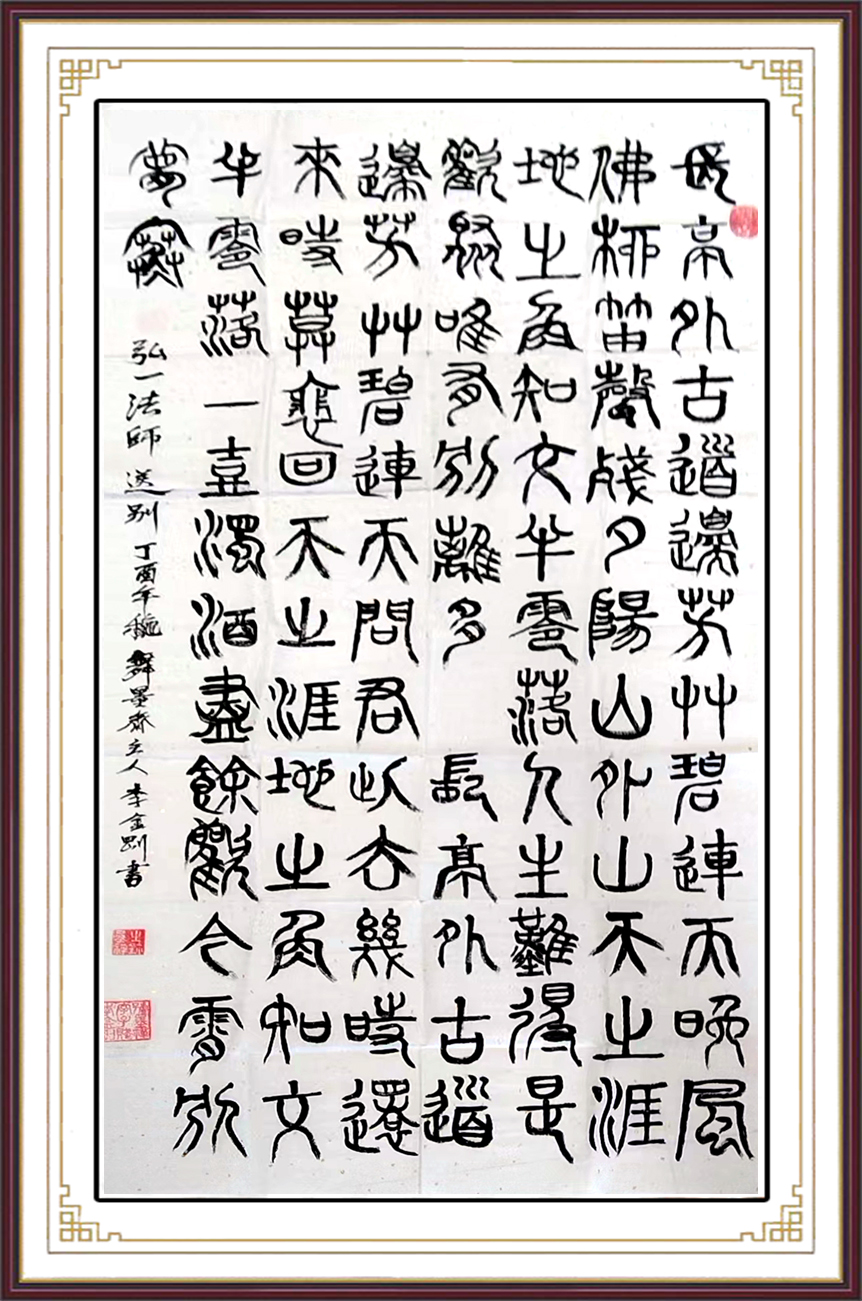 長亭外古道邊芳艸碧連天晚風
佛柳笛聲殘夕陽山外山天之涯
地之角知交半零落人生難得是
歡聚唯有別離多 長亭外古道
邊芳艸碧連天問君此去幾時還
來時莫裴回天之涯地之角知交
半零落一壺濁酒盡餘歡今宵別
夢寒
弘一法師 送别 丁酉年穐 舞墨齋主人 李金剛書